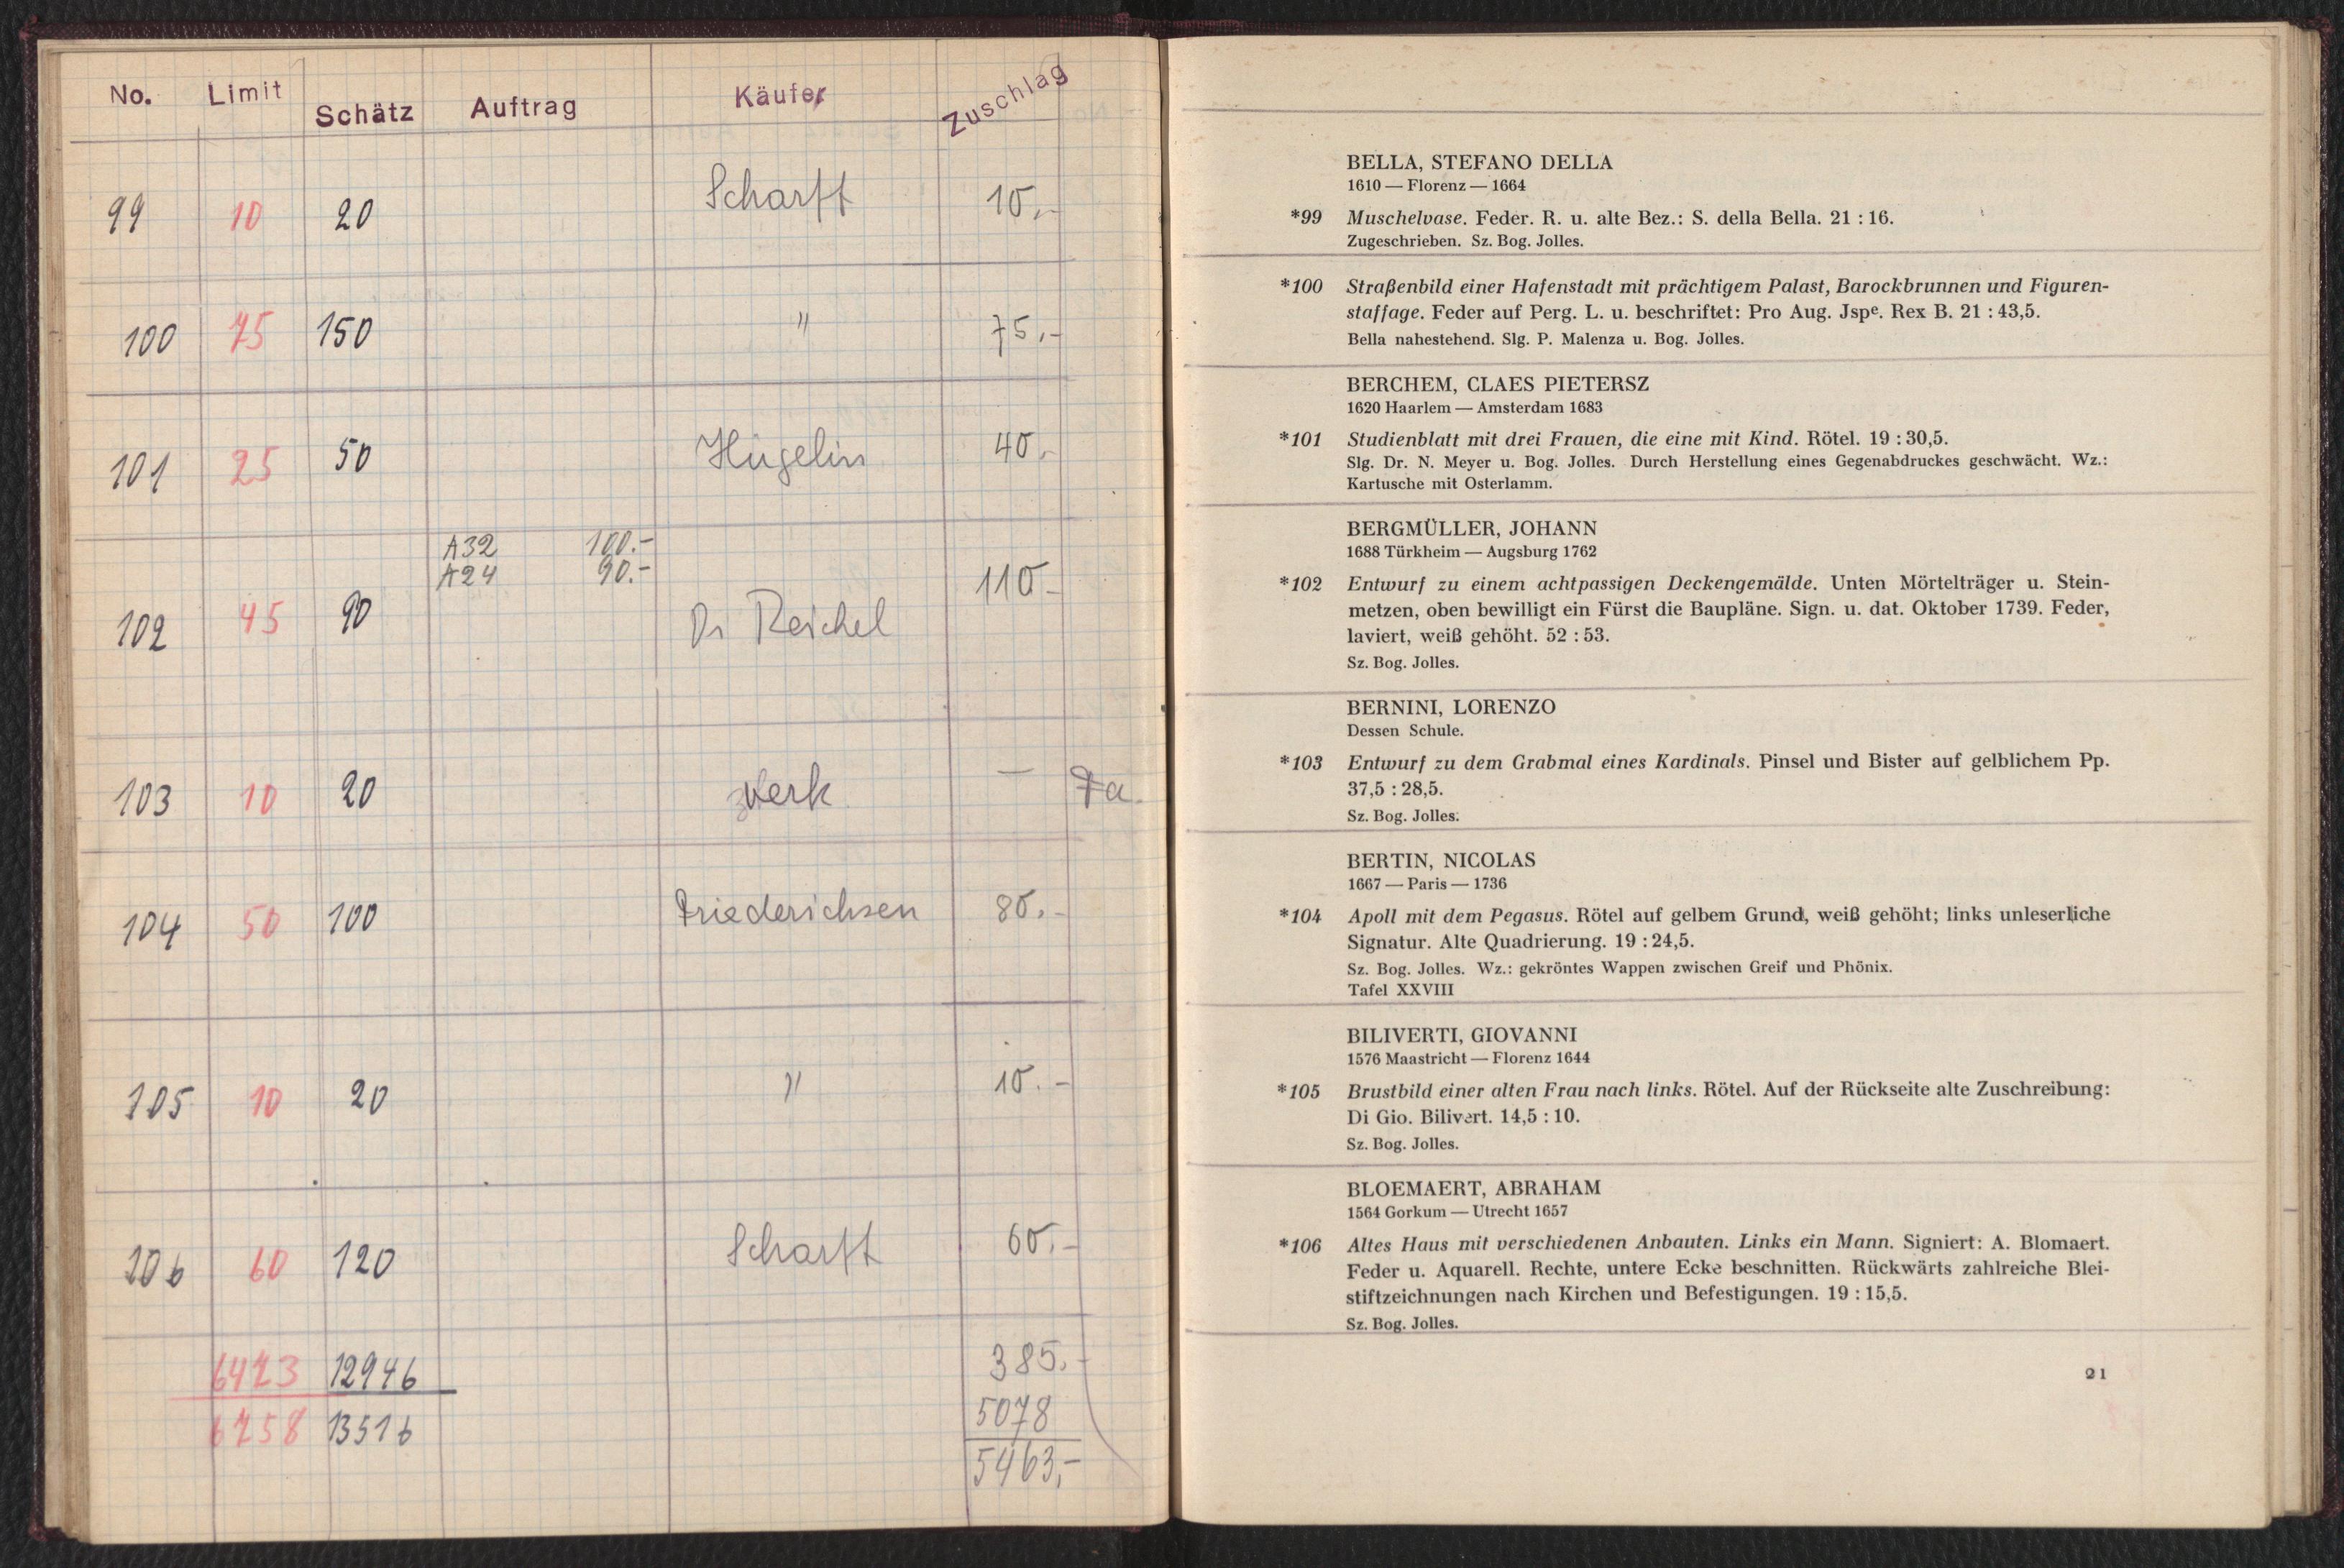 No. Limit Schätz Auftrag Käufer Zuschlag
99 10 20 Scharff 10.-
100 75 150 " 75.-
101 25 50 Hügelin 40.-
A32 100.-
A24 90.-
102 45 90 Dr Reichel 110-
103 10 20 — Fa.
104 50 100 Friederichsen 80.-
105 10 20 " 10.-
106 60 120 Scharff 60.-
6473 12946 385.-
6758 13516 5078
5463,-
BELLA, STEFANO DELLA
1610 — Florenz — 1664
*99 Muschelvase. Feder. R. u. alte Bez.: S. della Bella. 21 : 16.
Zugeschrieben. Sz. Bog. Jolles.
*100 Straßenbild einer Hafenstadt mit prächtigem Palast, Barockbrunnen und Figuren-
staffage. Feder auf Perg. L. u. beschriftet: Pro Aug. Jspe. Rex B. 21 : 43,5.
Bella nahestehend. Slg. P. Malenza u. Bog. Jolles.
BERCHEM, CLAES PIETERSZ
1620 Haarlem — Amsterdam 1683
*101 Studienblatt mit drei Frauen, die eine mit Kind. Rötel. 19 : 30,5.
Slg. Dr. N. Meyer u. Bog. Jolles. Durch Herstellung eines Gegenabdruckes geschwächt. Wz.:
Kartusche mit Osterlamm.
BERGMÜLLER, JOHANN
1688 Türkheim — Augsburg 1762
*102 Entwurf zu einem achtpassigen Deckengemälde. Unten Mörtelträger u. Stein-
metzen, oben bewilligt ein Fürst die Baupläne. Sign. u. dat. Oktober 1739. Feder,
laviert, weiß gehöht. 52 : 53.
Sz. Bog. Jolles.
BERNINI, LORENZO
Dessen Schule.
*103 Entwurf zu dem Grabmal eines Kardinals. Pinsel und Bister auf gelblichem Pp.
37,5 : 28,5.
Sz. Bog. Jolles.
BERTIN, NICOLAS
1667 — Paris — 1736
*104 Apoll mit dem Pegasus. Rötel auf gelbem Grund, weiß gehöht; links unleserliche
Signatur. Alte Quadrierung. 19 : 24,5.
Sz. Bog. Jolles. Wz.: gekröntes Wappen zwischen Greif und Phönix.
Tafel XXVIII
BILIVERTI, GIOVANNI
1576 Maastricht — Florenz 1644
*105 Brustbild einer alten Frau nach links. Rötel. Auf der Rückseite alte Zuschreibung:
Di Gio. Bilivert. 14,5 : 10.
Sz. Bog. Jolles.
BLOEMAERT, ABRAHAM
1564 Gorkum — Utrecht 1657
*106 Altes Haus mit verschiedenen Anbauten. Links ein Mann. Signiert: A. Blomaert.
Feder u. Aquarell. Rechte, untere Ecke beschnitten. Rückwärts zahlreiche Blei-
stiftzeichnungen nach Kirchen und Befestigungen. 19 : 15,5.
Sz. Bog. Jolles.
21